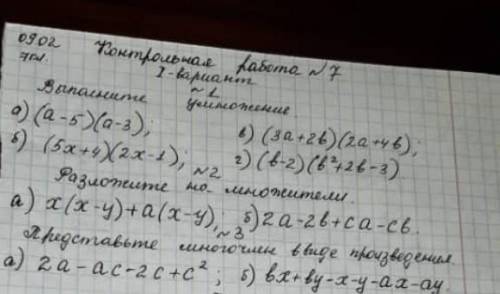 09.02 Контрольная работа №7
7кл. I-вариант
№1
Выполните умножение.
а) (a-5)(a-3); в) (3a+2b)(2a+4b);
б) (5x+4)(2x-1); г) (b-2)(b²+2b-3)
№2
Разложите на множители.
а) x(x-y)+a(x-y); б) 2a-2b+ca-cb.
№3
Представьте многочлен в виде произведения.
а) 2a-ac-2c+c²; б) bx+by-x-y-ax-ay.